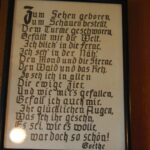 Zum Sehen geboren,
Zum Schauen bestellt,
Dem Turme geschworen,
Gefällt mir die Welt.
Ich blick' in die ferne,
Ich seh' in der Näh'
Den Mond und die Sterne,
Den Wald und das Reh.
So seh ich in allen
Die ewige Zier,
Und wie mir's gefallen,
Gefall ich auch mir.
Ihr glücklichen Augen,
Was je ihr gesehn,
Es sei wie es wolle,
Es war doch so schön!
Goethe